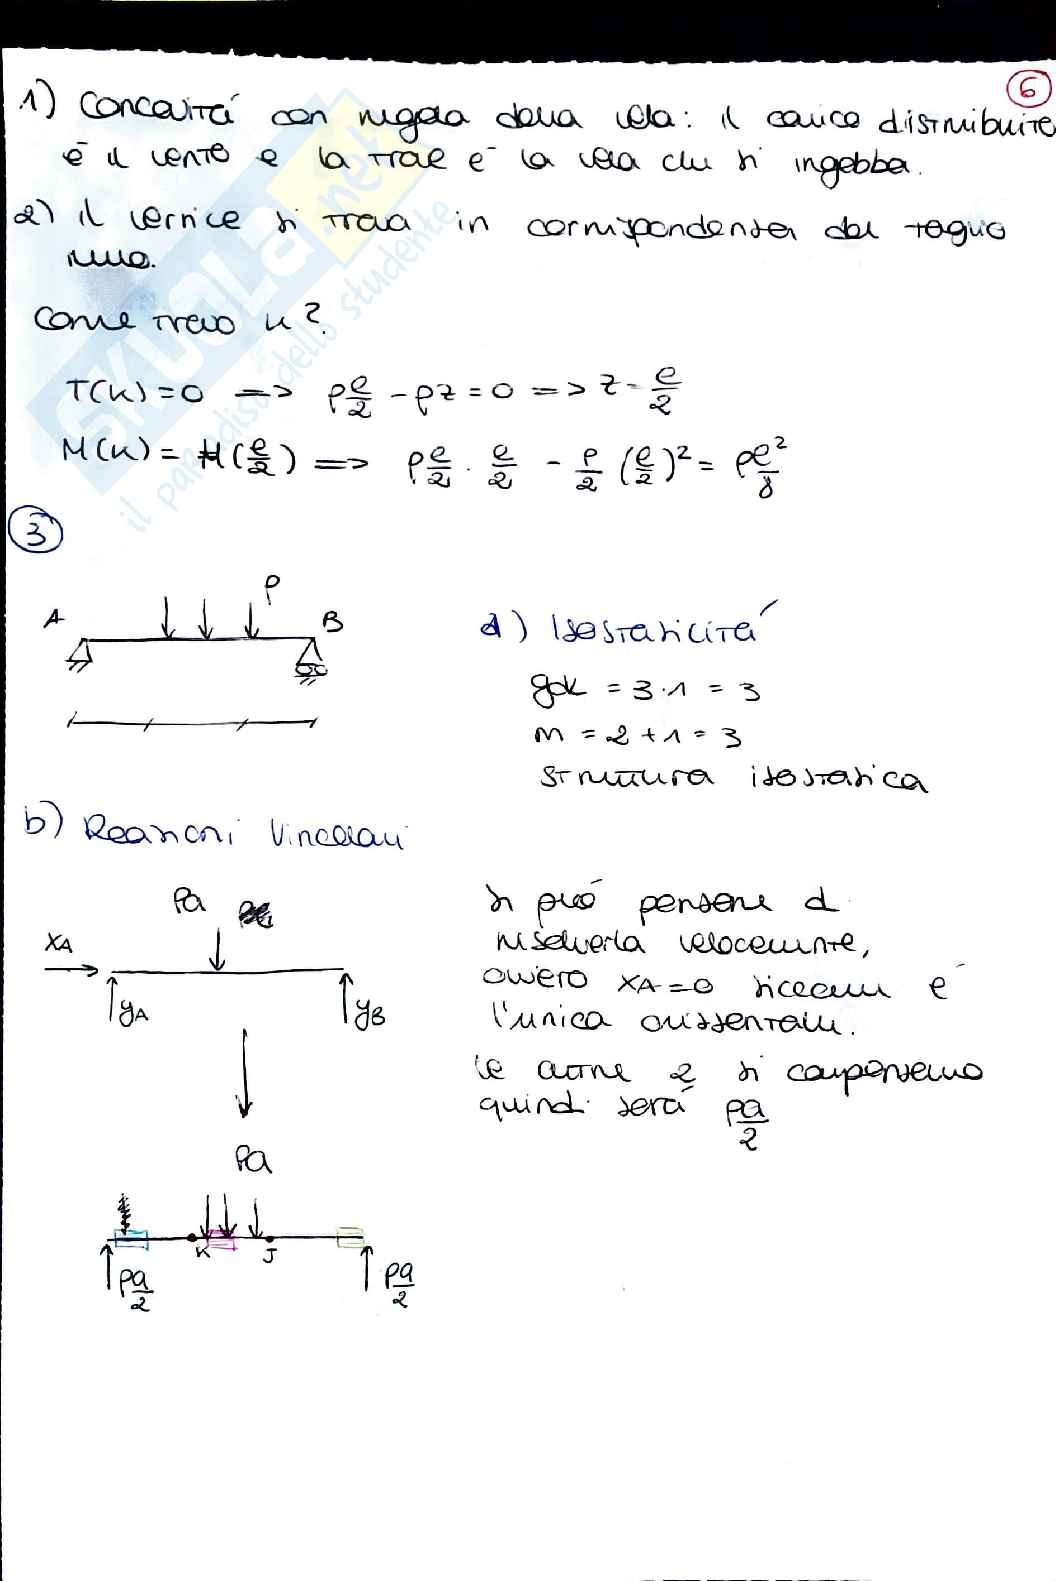 6
1) Concavità con regola della vela: il carico distribuito
è il vento e la trave è la vela che si ingobba.
2) Il vertice si trova in corrispondenza del taglio
nullo.
Come trovo K?
T(K)=0 => pℓ/2 - pz=0 => z=ℓ/2
M(K) = M(ℓ/2) => pℓ/2 · ℓ/2 - p/2 (ℓ/2)² = pℓ²/8
3
p
A
B
a) Isostaticità
gdl = 3·1 = 3
m = 2+1 = 3
struttura isostatica
b) Reazioni Vincolari
Pa
XA
yA
yB
si può pensare di
risolverla velocemente,
ovvero XA=0 siccome è
l'unica orizzontale.
le altre 2 si compensano
quindi sarà pa/2
Pa
K
J
pa/2
pa/2
SKUOLA.net
il paradiso dello studente